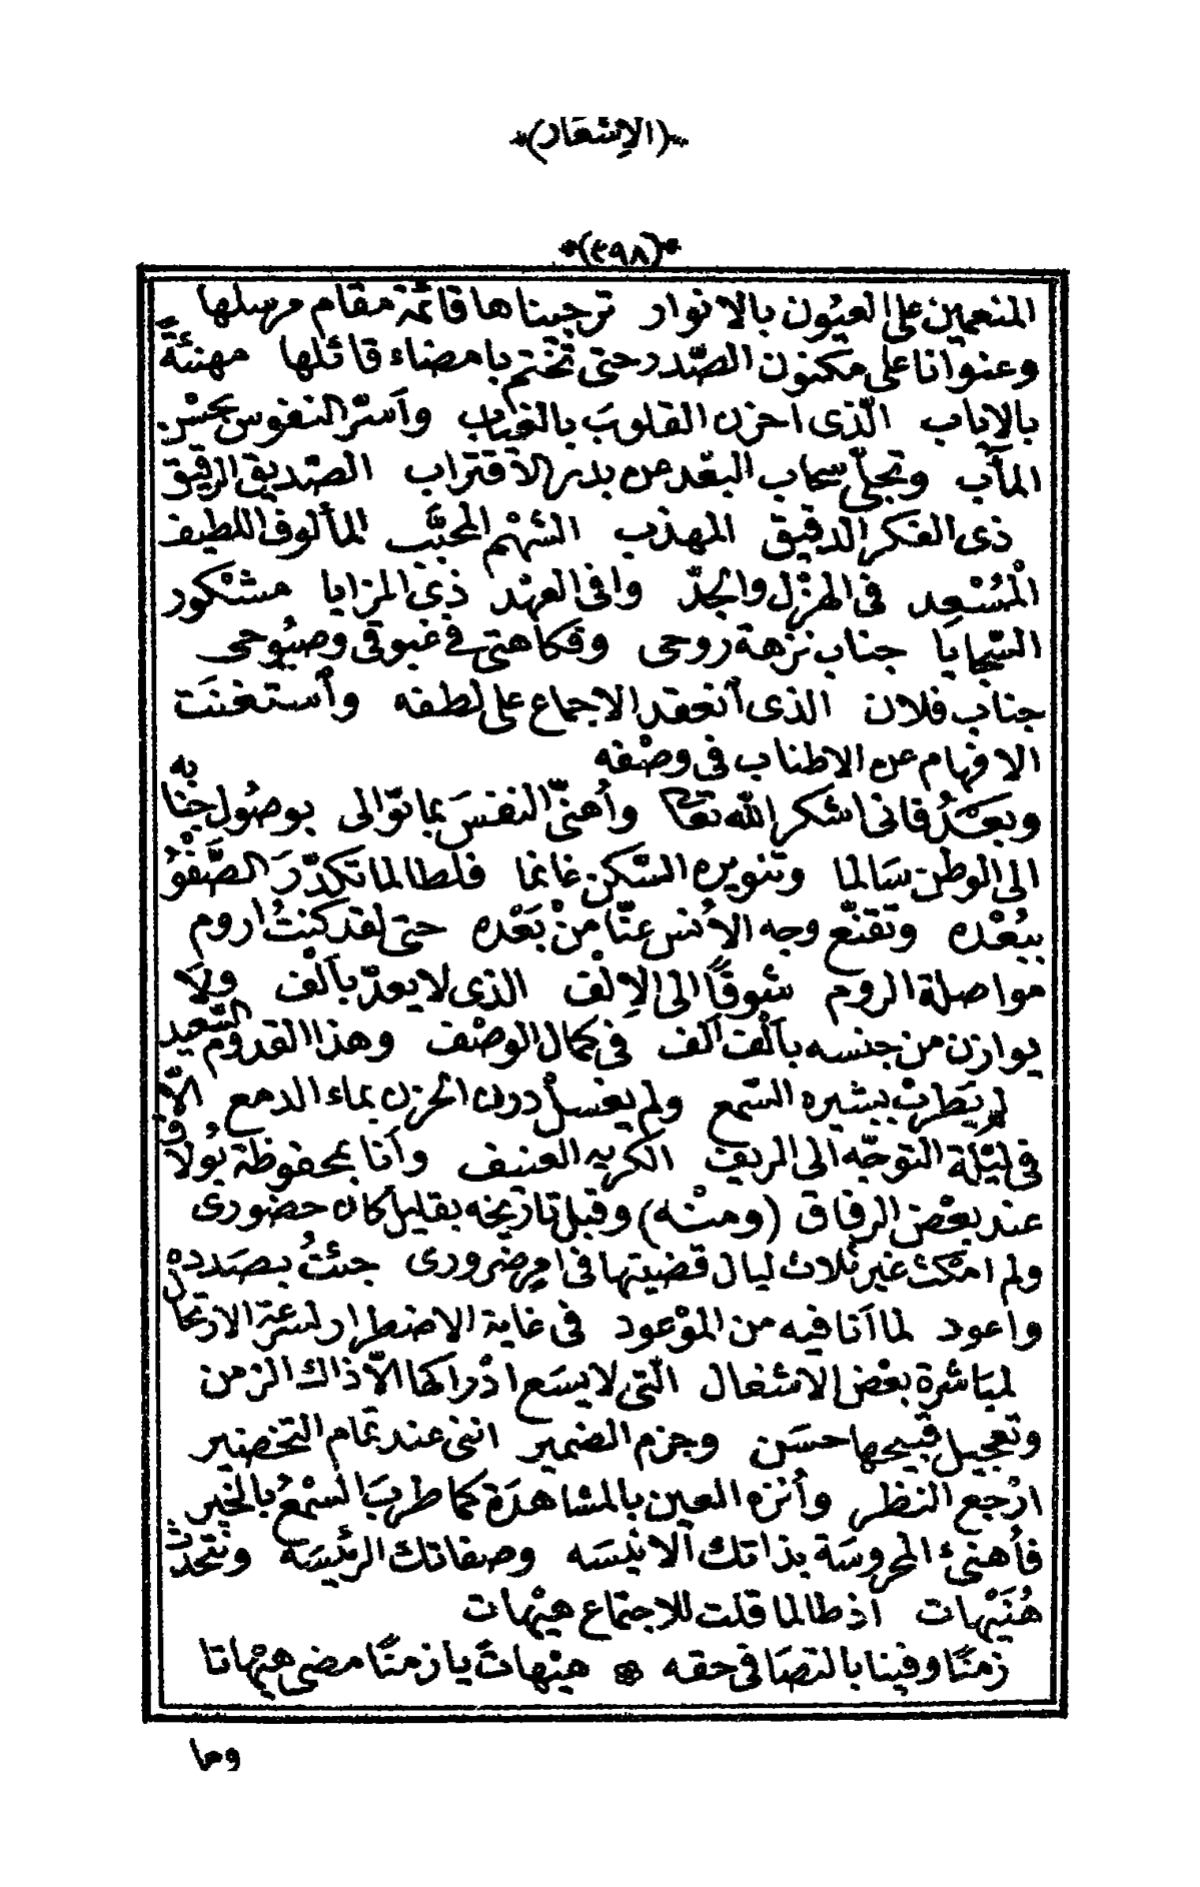 *(الإشعار)*
*(٣٩٨)*
المنعمين على العيون بالانوار ترجيناها قائمة مقام مرسلها
وعنوانا على مكنون الصّدر حتى تختم بامضاء قائلها مهنئةً
بالاياب الّذى احزن القلوبَ بالغياب وأسرّ النفوس بحسْن
المآب وتجلّى سحاب البعْد عن بدر الاقتراب الصّديق الرقيق
ذى الفكر الدقيق المهذب الشهْم المحبَّب المألوف اللطيف
الْمُسْعِد فى الهزْل والجدّ وافى العهْد ذى المزايا مشْكور
السّجايا جناب نزْهة روحى وفكاهتى فى غبوقى وصبُوحى
جناب فلان الذى أنعقد الاجماع على لطفه وأستغنَت
الافهام عن الاطناب فى وصْفه
وبعْدُ فانى اشكر الله تعالى وأهنّى النفسَ بما توّالى بوصُول جنابه
الى الوطن سَالما وتنويره السّكن غانما فلطالما تكدّرَ الصَّفْوُ
ببُعْده وتقنّع وجه الأنس عنّا منْ بَعْده حتى لقد كنتُ اروم
مواصلة الروم شوقاً الى الإلْف الذى لا يعدّ بألْف ولا
يوازن من جنسه بألْف ألف فى كمال الوصْف وهذا القدوم السّعيد
لم يَطربْ ببشيره السّمع ولم يغسلْ درن الحزن بماء الدمع الاّ
فى ليْلة التوجّه الى الريف الكريه العنيف وأنا بمحفوظة بُولاق
عند بعْض الرفاق (ومنْه) وقبل تاريخه بقليل كان حضورى
ولم امكث غير ثلاث ليال قضيتها فى امر ضرورى جئتُ بصَدده
واعود لما أنا فيه من الموْعود فى غاية الاضطرار لسرعة الارتحال
لمبَاشرة بعْض الاشغال الّتى لا يسَع ادْراكها الاّ ذاك الزمن
وتعجيل قبيحها حسَن وجزم الضمير اننى عند تمام التخضير
ارْجع النظر وأنزه العين بالمشاهدَة كما طربَ السّمْعُ بالخبر
فأهنئ المحروسَة بذاتك الانيسَه وصفاتك الرئيسَة ونتحدّث
هُنَيْهات اذ طالما قلت للاجتماع هيْهات
زمنًا وفينا بالتصَافى حقه ۞ هيْهاتَ يا زمنًا مضى هيْهاتا
وما